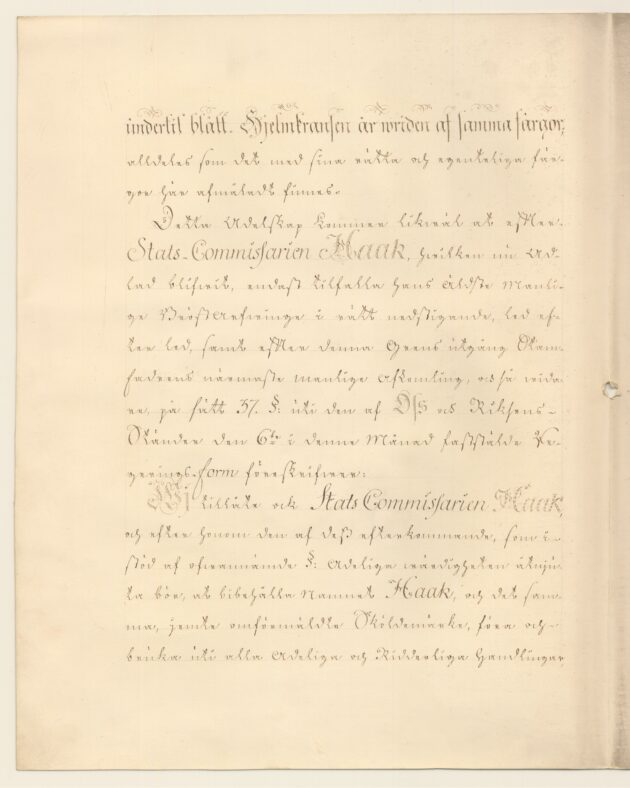 undertil blått. Hjelmkransen är wriden af samma färgor;
alldeles som det med sina rätta och egenteliga fär-
gor här afmåladt finnes.
Detta Adelskap kommer likwäl at efter
Stats-Commissarien Haak, hwilken nu Ad-
lad blifwit, endast tilfalla hans äldste Manli-
ge Bröst Arfwinge i rätt nedstigande, led ef-
ter led, samt efter denna Grens utgång Stam-
fadrens närmaste manlige Afkomling, och så wida-
re, på sätt 37. §: uti den af Oss och Riksens
Ständer den 6te i denne Månad faststälde Re-
gerings-form föreskrifwer:
Wi tillåte ock Stats Commissarien Haak,
och efter honom den af dess efterkommande, som i
stöd af ofwannämde §: Adeliga wärdigheten åtnju-
ta bör, at bibehålla Namnet Haak, och det sam-
ma, jemte omförmäldte Sköldemärke, föra och
bruka uti alla Adeliga och Ridderliga Handlingar